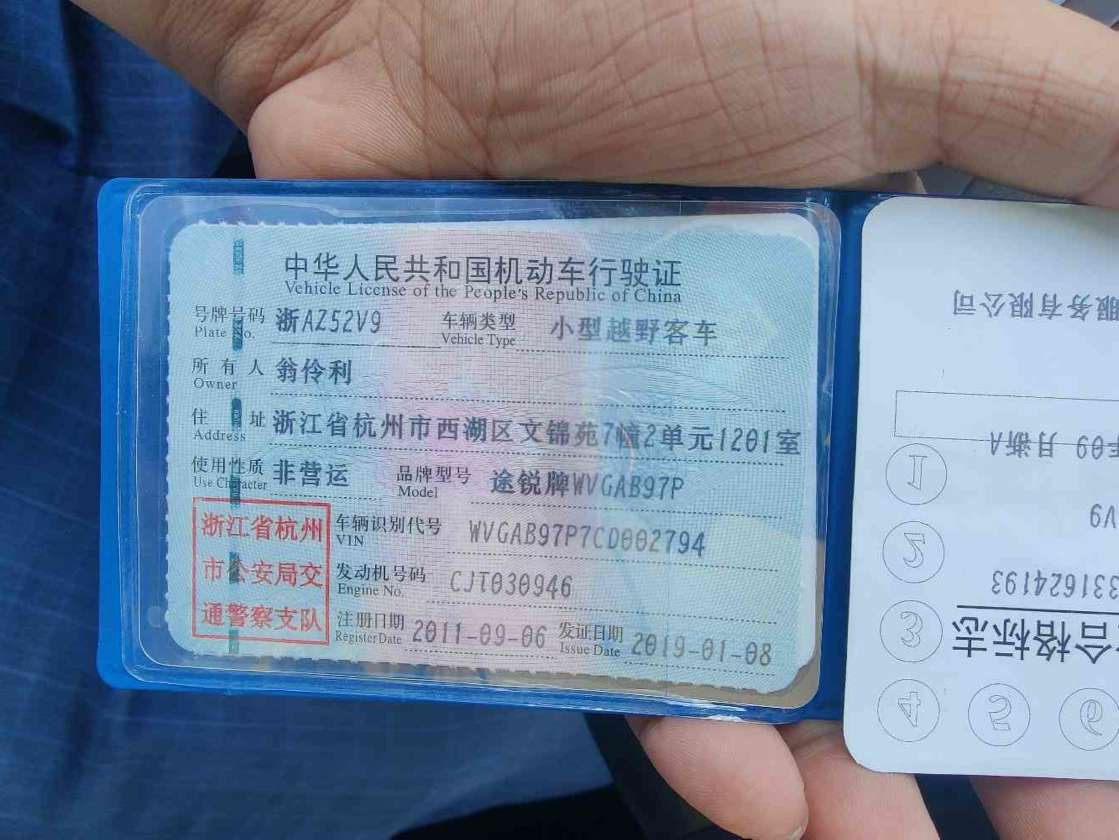 中华人民共和国机动车行驶证
Vehicle License of the People's Republic of China
号牌号码 浙AZ52V9 车辆类型 小型越野客车
Plate No. Vehicle Type
所有人 翁伶利
Owner
住址 浙江省杭州市西湖区文锦苑7幢2单元1201室
Address
使用性质 非营运 品牌型号 途锐牌WVGAB97P
Use Character Model
浙江省杭州
市公安局交
通警察支队
车辆识别代号 WVGAB97P7CD002794
VIN
发动机号码 CJT030946
Engine No.
注册日期 2011-09-06 发证日期 2019-01-08
Register Date Issue Date
服务有限公司
09 月 浙A
V9
331624193
合格标志
1
2
3
4
5
6